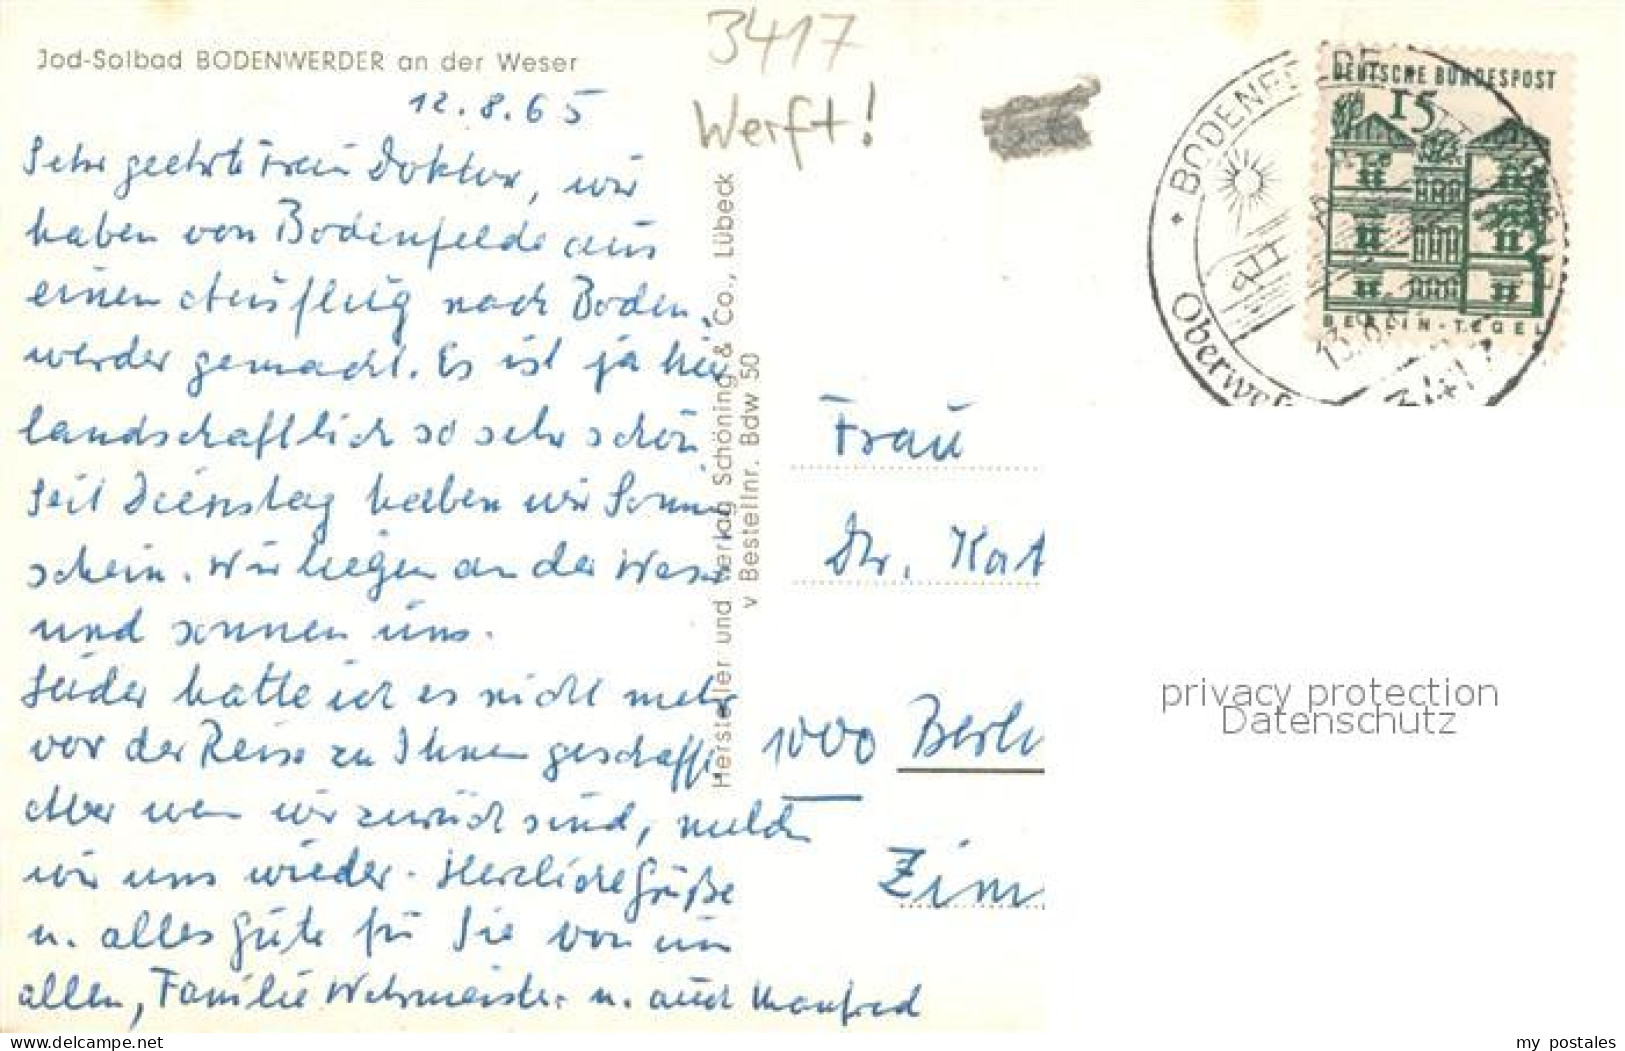 Jod-Solbad BODENWERDER an der Weser
12.8.65
Sehr geehrte Frau Doktor, wir
haben von Bodenfelde aus
einen Ausflug nach Boden-
werder gemacht. Es ist ja hier
landschaftlich so sehr schön.
Seit Dienstag haben wir Sonnen
schein. Wir liegen an der Weser
und sonnen uns.
Leider hatte ich es nicht mehr
vor der Reise zu Ihnen geschafft.
Aber wenn wir zurück sind, melden
wir uns wieder. Herzliche Grüße
u. alles Gute für Sie von uns
allen, Familie Wehrmeister u. auch Manfred
Hersteller und Verlag Schöning & Co., Lübeck
v Bestellnr. Bdw 50
3417
Werft!
DEUTSCHE BUNDESPOST
15
BERLIN-TEGEL
BODENFELDE
Oberwes
Frau
Dr. Kat
1000 Berlin
Zim
privacy protection
Datenschutz
delcampe.net
my_postales